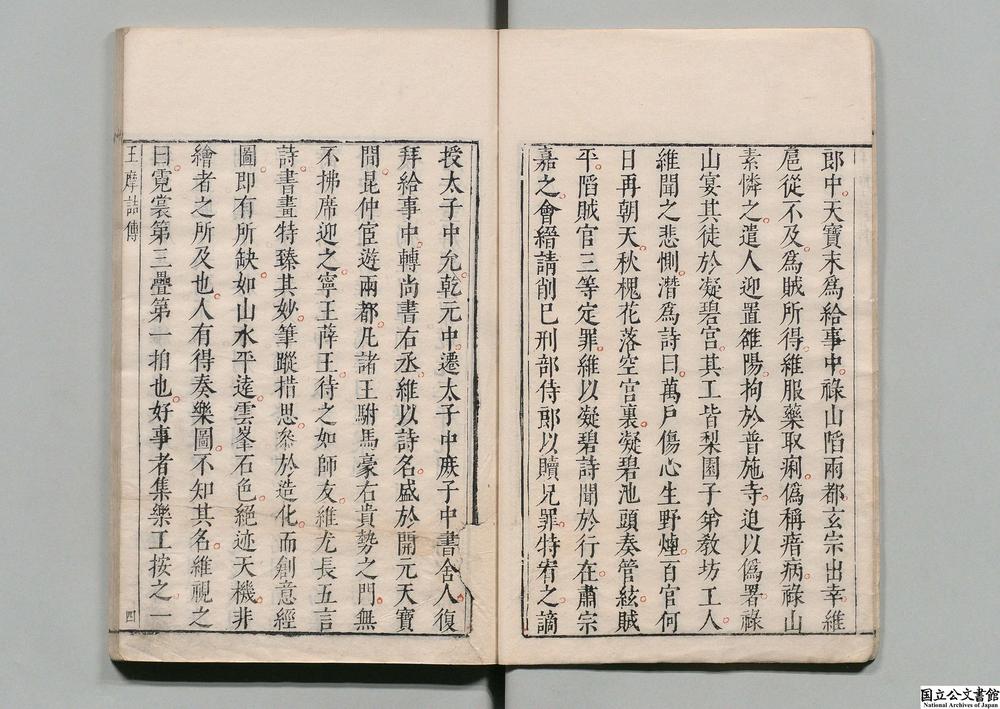 郎中天寶末爲給事中祿山陷兩都玄宗出幸維
扈從不及爲賊所得維服藥取痢僞稱瘖病祿山
素憐之遣人迎置雒陽拘於普施寺迫以僞署祿
山宴其徒於凝碧宮其工皆梨園子弟敎坊工人
維聞之悲惻潛爲詩曰萬戶傷心生野煙百官何
日再朝天秋槐花落空宮裏凝碧池頭奏管絃賊
平陷賊官三等定罪維以凝碧詩聞於行在肅宗
嘉之會縉請削已刑部侍郎以贖兄罪特宥之謫
授太子中允乾元中遷太子中庻子中書舍人復
拜給事中轉尚書右丞維以詩名盛於開元天寶
間昆仲宦遊兩都凡諸王駙馬豪右貴勢之門無
不拂席迎之寧王薛王待之如師友維尤長五言
詩書畫特臻其妙筆蹤措思叅於造化而創意經
圖即有所缺如山水平遠雲峯石色絕迹天機非
繪者之所及也人有得奏樂圖不知其名維視之
曰霓裳第三疊第一拍也好事者集樂工按之一
王摩詰傳
四
国立公文書館
National Archives of Japan